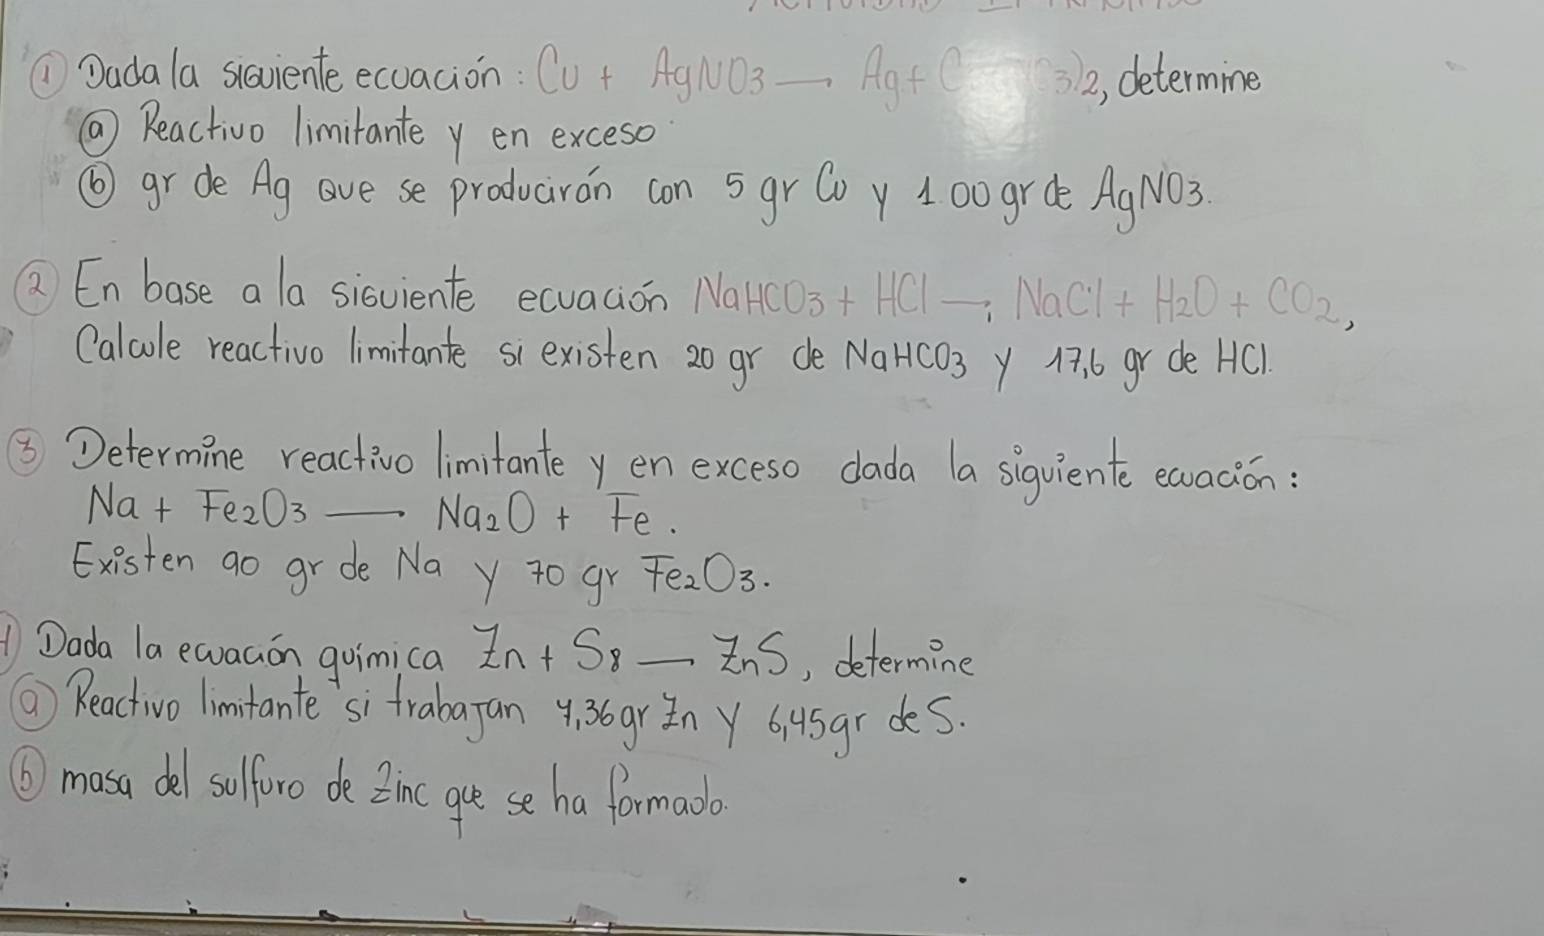 ① Dada la siguiente ecuación: Cu + AgNO3 — Ag + 3)2, determine
ⓐ Reactivo limitante y en exceso
ⓑ gr de Ag que se producirán con 5 gr Cu y 1.00 gr de AgNO3.
② En base a la siguiente ecuación NaHCO3 + HCl → NaCl + H2O + CO2,
Calcule reactivo limitante si existen 20 gr de NaHCO3 y 17,6 gr de HCl.
③ Determine reactivo limitante y en exceso dada la siguiente ecuación:
Na + Fe2O3 — Na2O + Fe.
Existen 90 gr de Na y 70 gr Fe2O3.
Dada la ecuación química Zn + S8 — ZnS, determine
ⓐ Reactivo limitante si trabajan 7,36 gr Zn y 6,45 gr de S.
ⓑ masa del sulfuro de zinc que se ha formado.